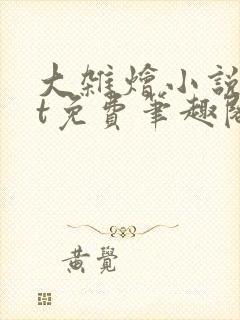 大雑燴小説
t免費筆趣閣
黃覺